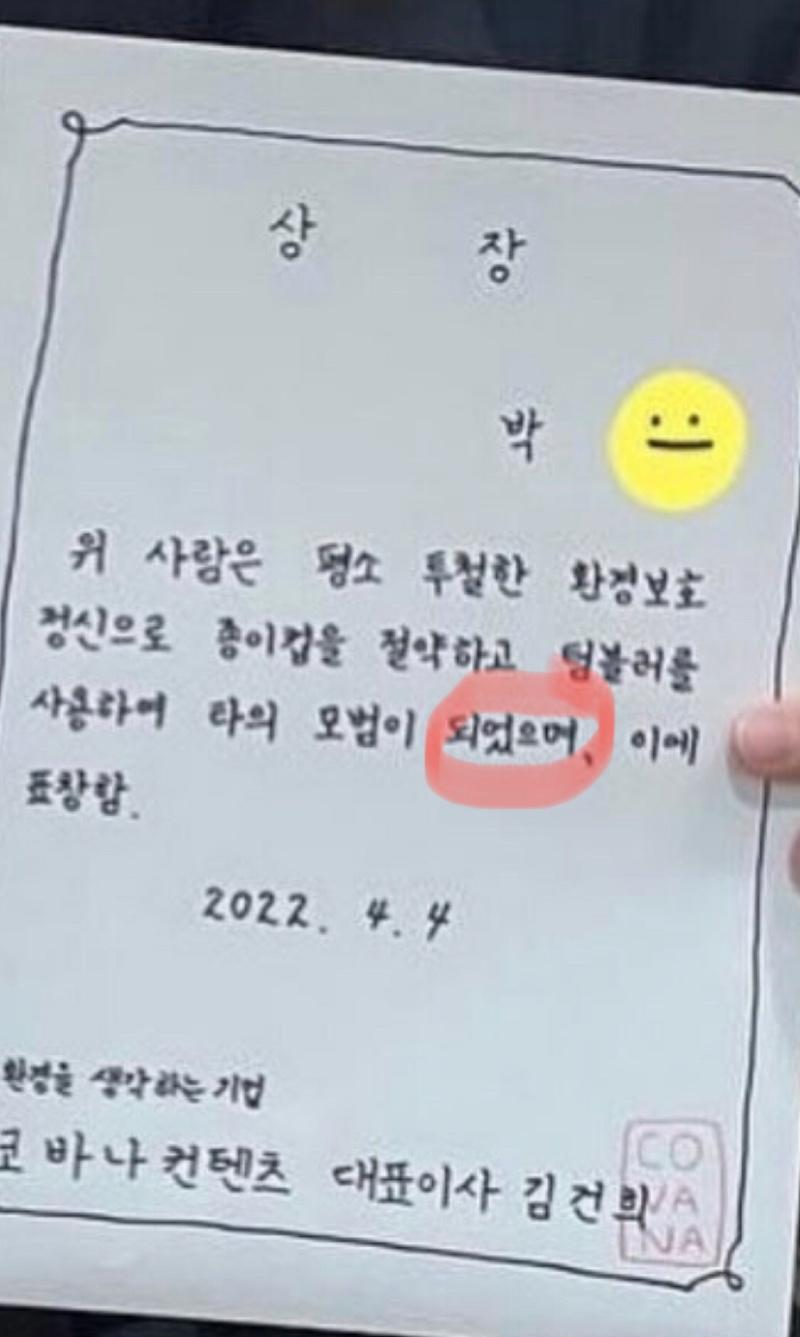 상 장
박
위 사람은 평소 투철한 환경보호
정신으로 종이컵을 절약하고 텀블러를
사용하여 타의 모범이 되었으며, 이에
표창함.
2022. 4. 4
환경을 생각하는 기업
코바나컨텐츠 대표이사 김건희
CO
VA
NA